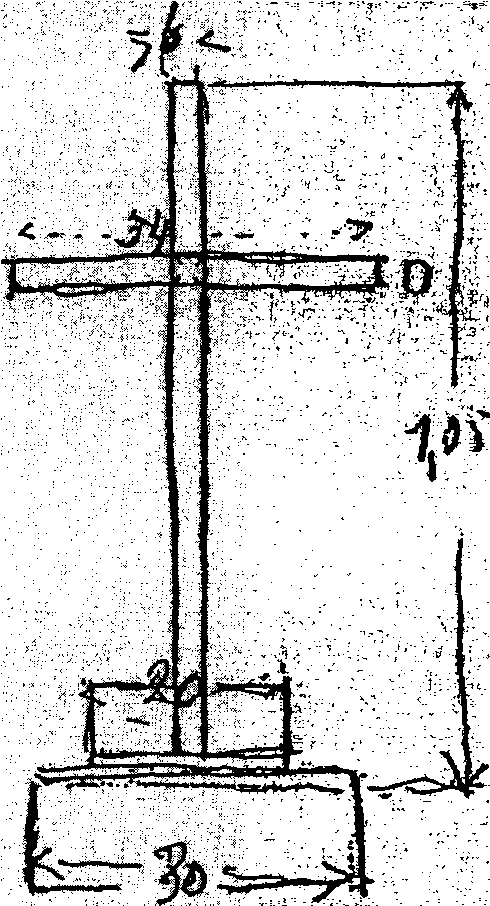 6
34
D
1,05
20
30